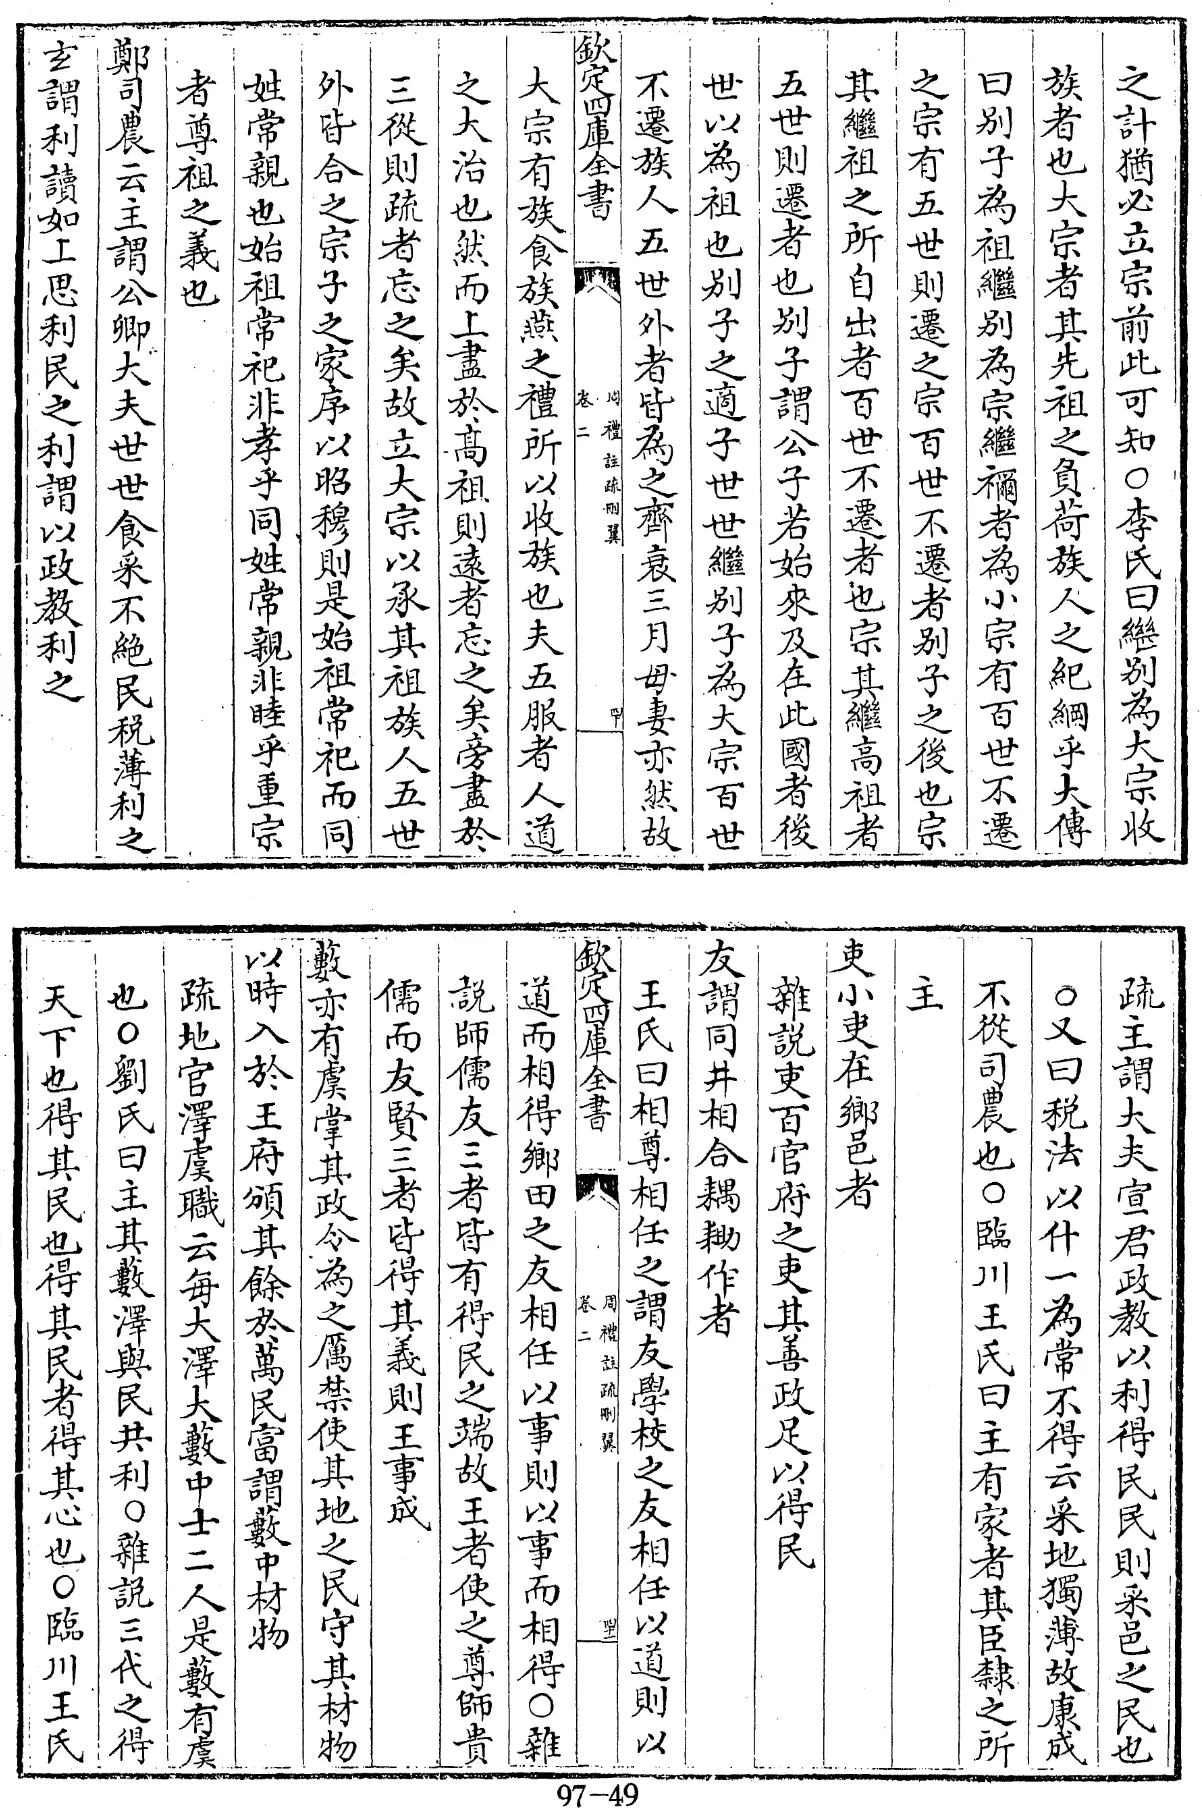 之計猶必立宗前此可知○李氏曰繼别為大宗收
族者也大宗者其先祖之負荷族人之紀綱乎大傳
曰别子為祖繼别為宗繼禰者為小宗有百世不遷
之宗有五世則遷之宗百世不遷者别子之後也宗
其繼祖之所自出者百世不遷者也宗其繼高祖者
五世則遷者也别子謂公子若始來及在此國者後
世以為祖也别子之適子世世繼别子為大宗百世
不遷族人五世外者皆為之齊衰三月母妻亦然故
欽定四庫全書
周禮註疏刪翼
卷二
大宗有族食族燕之禮所以收族也夫五服者人道
之大治也然而上盡於髙祖則逺者忘之矣旁盡於
三從則疏者忘之矣故立大宗以承其祖族人五世
外皆合之宗子之家序以昭穆則是始祖常祀而同
姓常親也始祖常祀非孝乎同姓常親非睦乎重宗
者尊祖之義也
鄭司農云主謂公卿大夫世世食采不絶民税薄利之
玄謂利讀如上思利民之利謂以政教利之
疏主謂大夫宣君政教以利得民民則采邑之民也
○又曰税法以什一為常不得云采地獨薄故康成
不從司農也○臨川王氏曰主有家者其臣隸之所
主
吏小吏在鄉邑者
雜説吏百官府之吏其善政足以得民
友謂同井相合耦耡作者
王氏曰相尊相任之謂友學校之友相任以道則以
欽定四庫全書
周禮註疏刪翼
卷二
道而相得鄉田之友相任以事則以事而相得○雜
説師儒友三者皆有得民之端故王者使之尊師貴
儒而友賢三者皆得其義則王事成
藪亦有虞掌其政令為之厲禁使其地之民守其材物
以時入於王府頒其餘於萬民富謂藪中材物
疏地官澤虞職云每大澤大藪中士二人是藪有虞
也○劉氏曰主其藪澤與民共利○雜説三代之得
天下也得其民也得其民者得其心也○臨川王氏
97-49